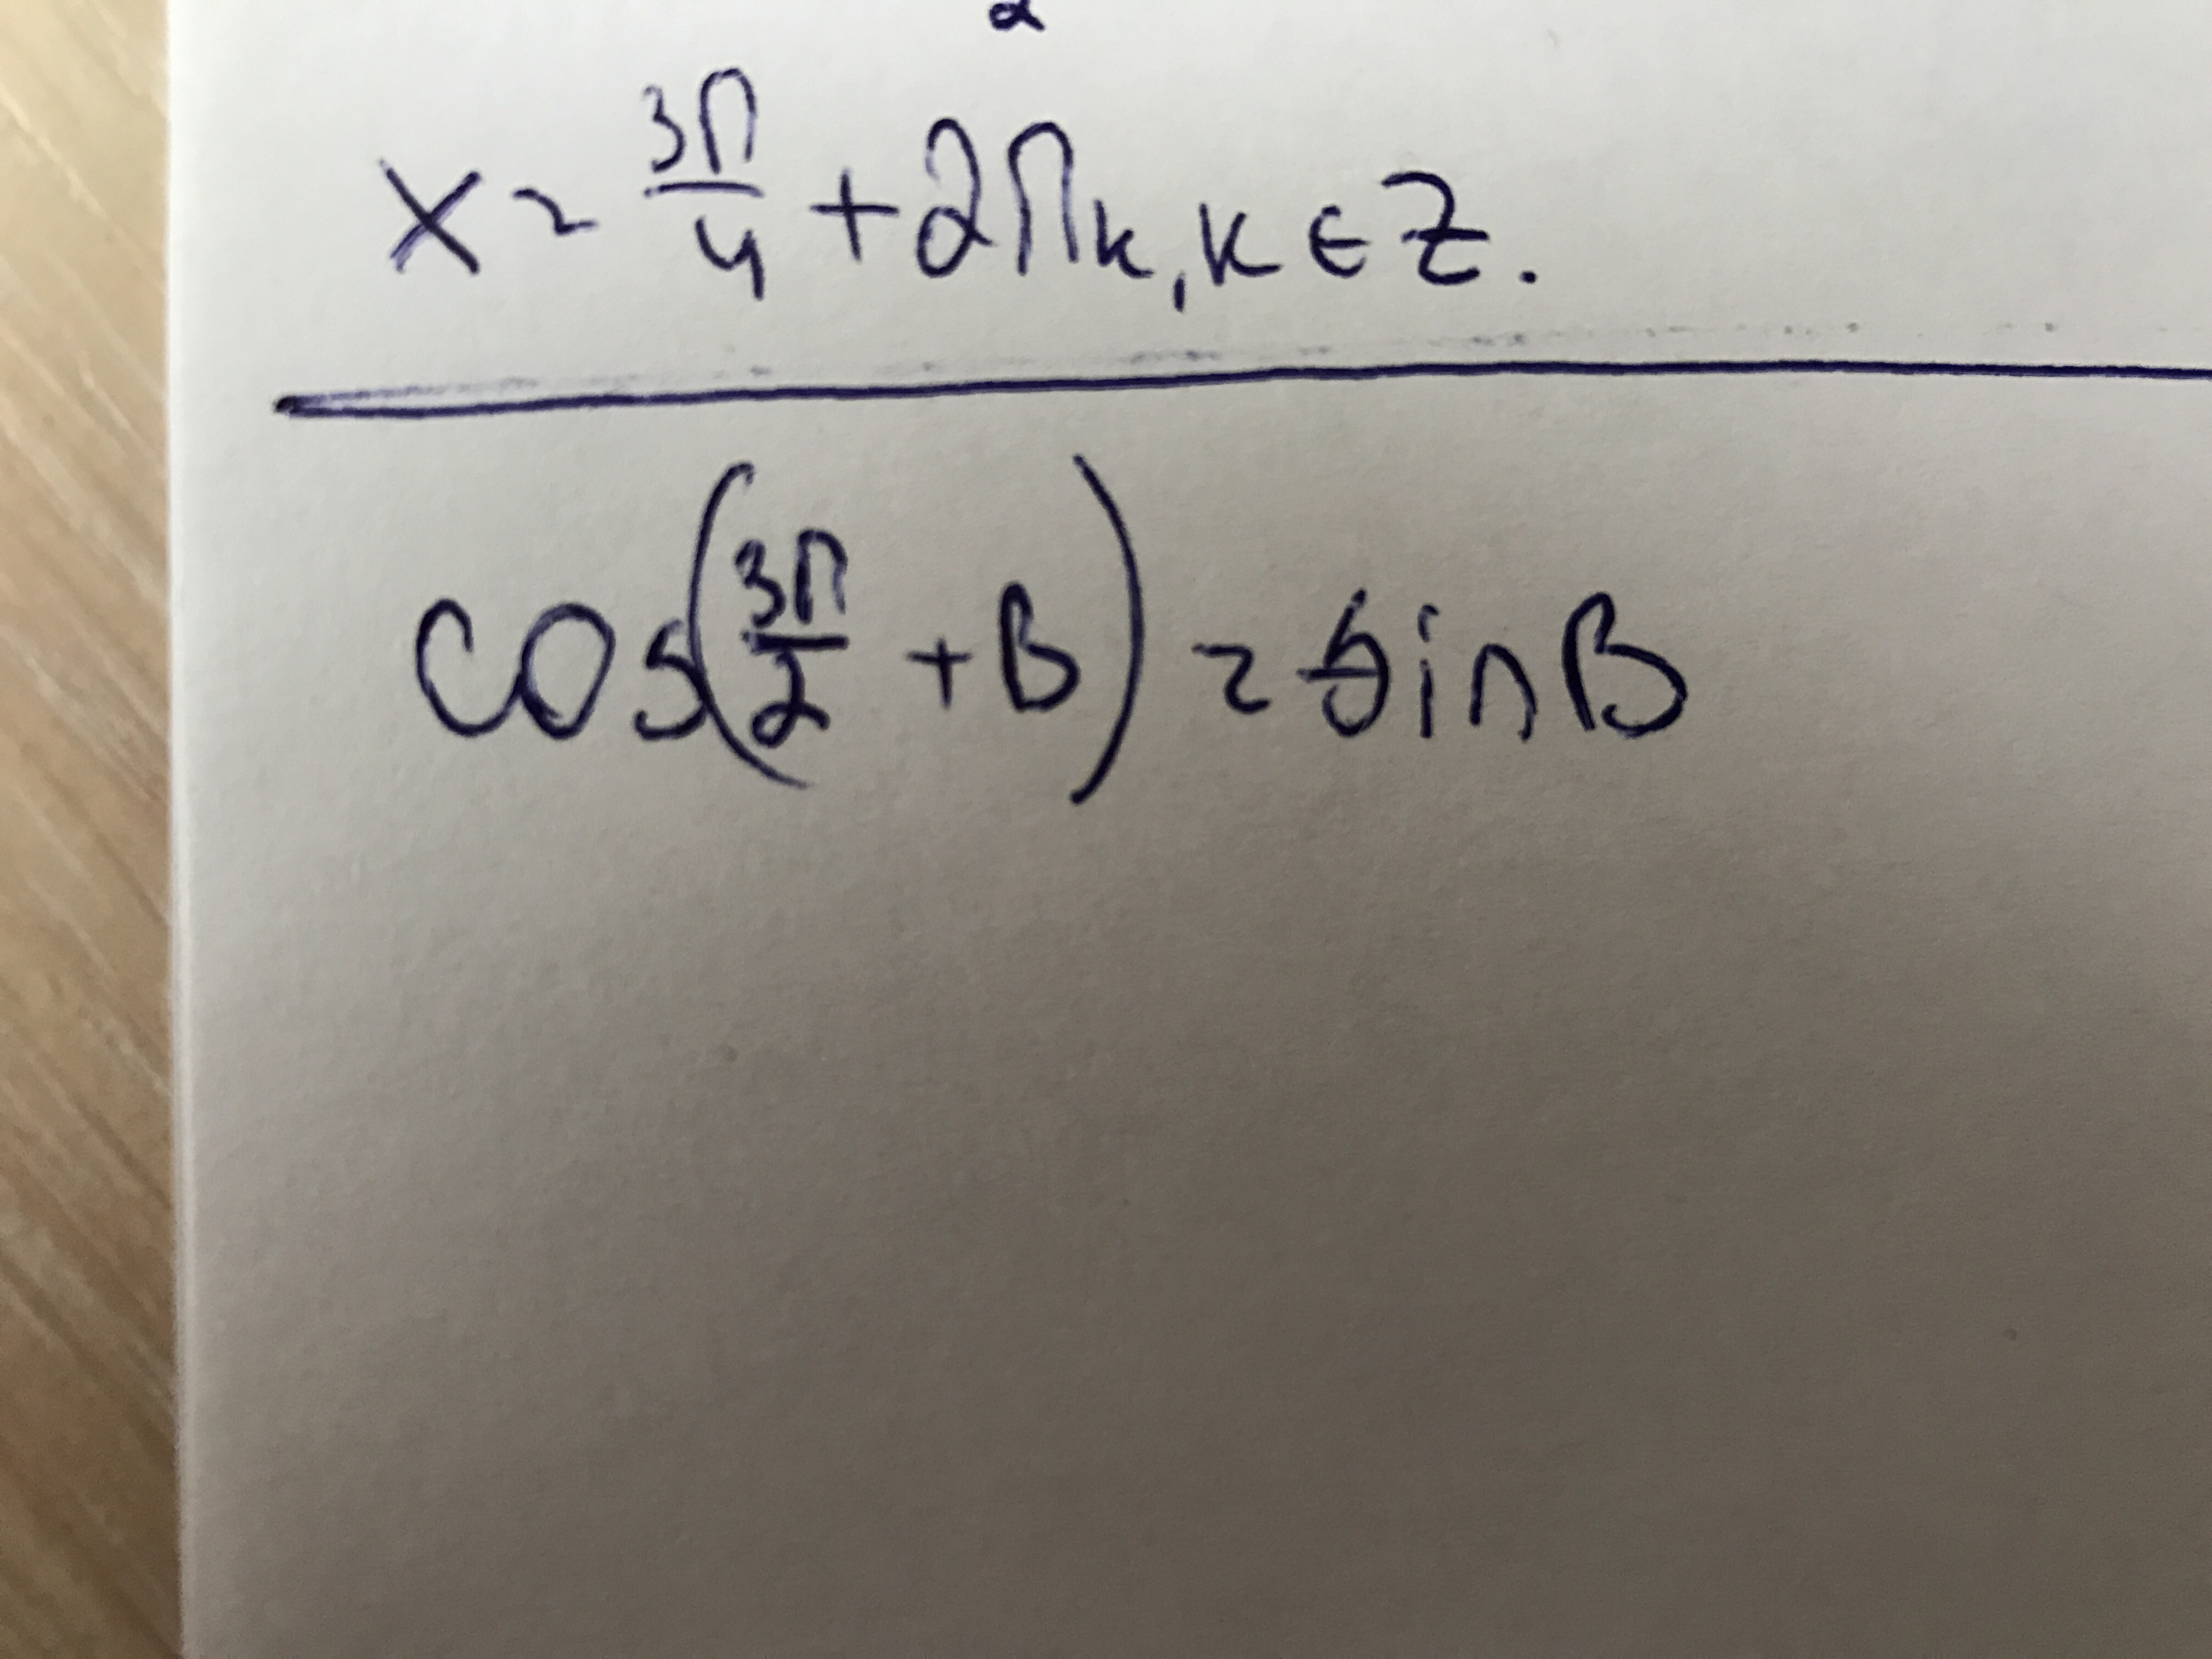 x = 3π/4 + 2πk, k ∈ Z.
cos(3π/2 + B) = sin B